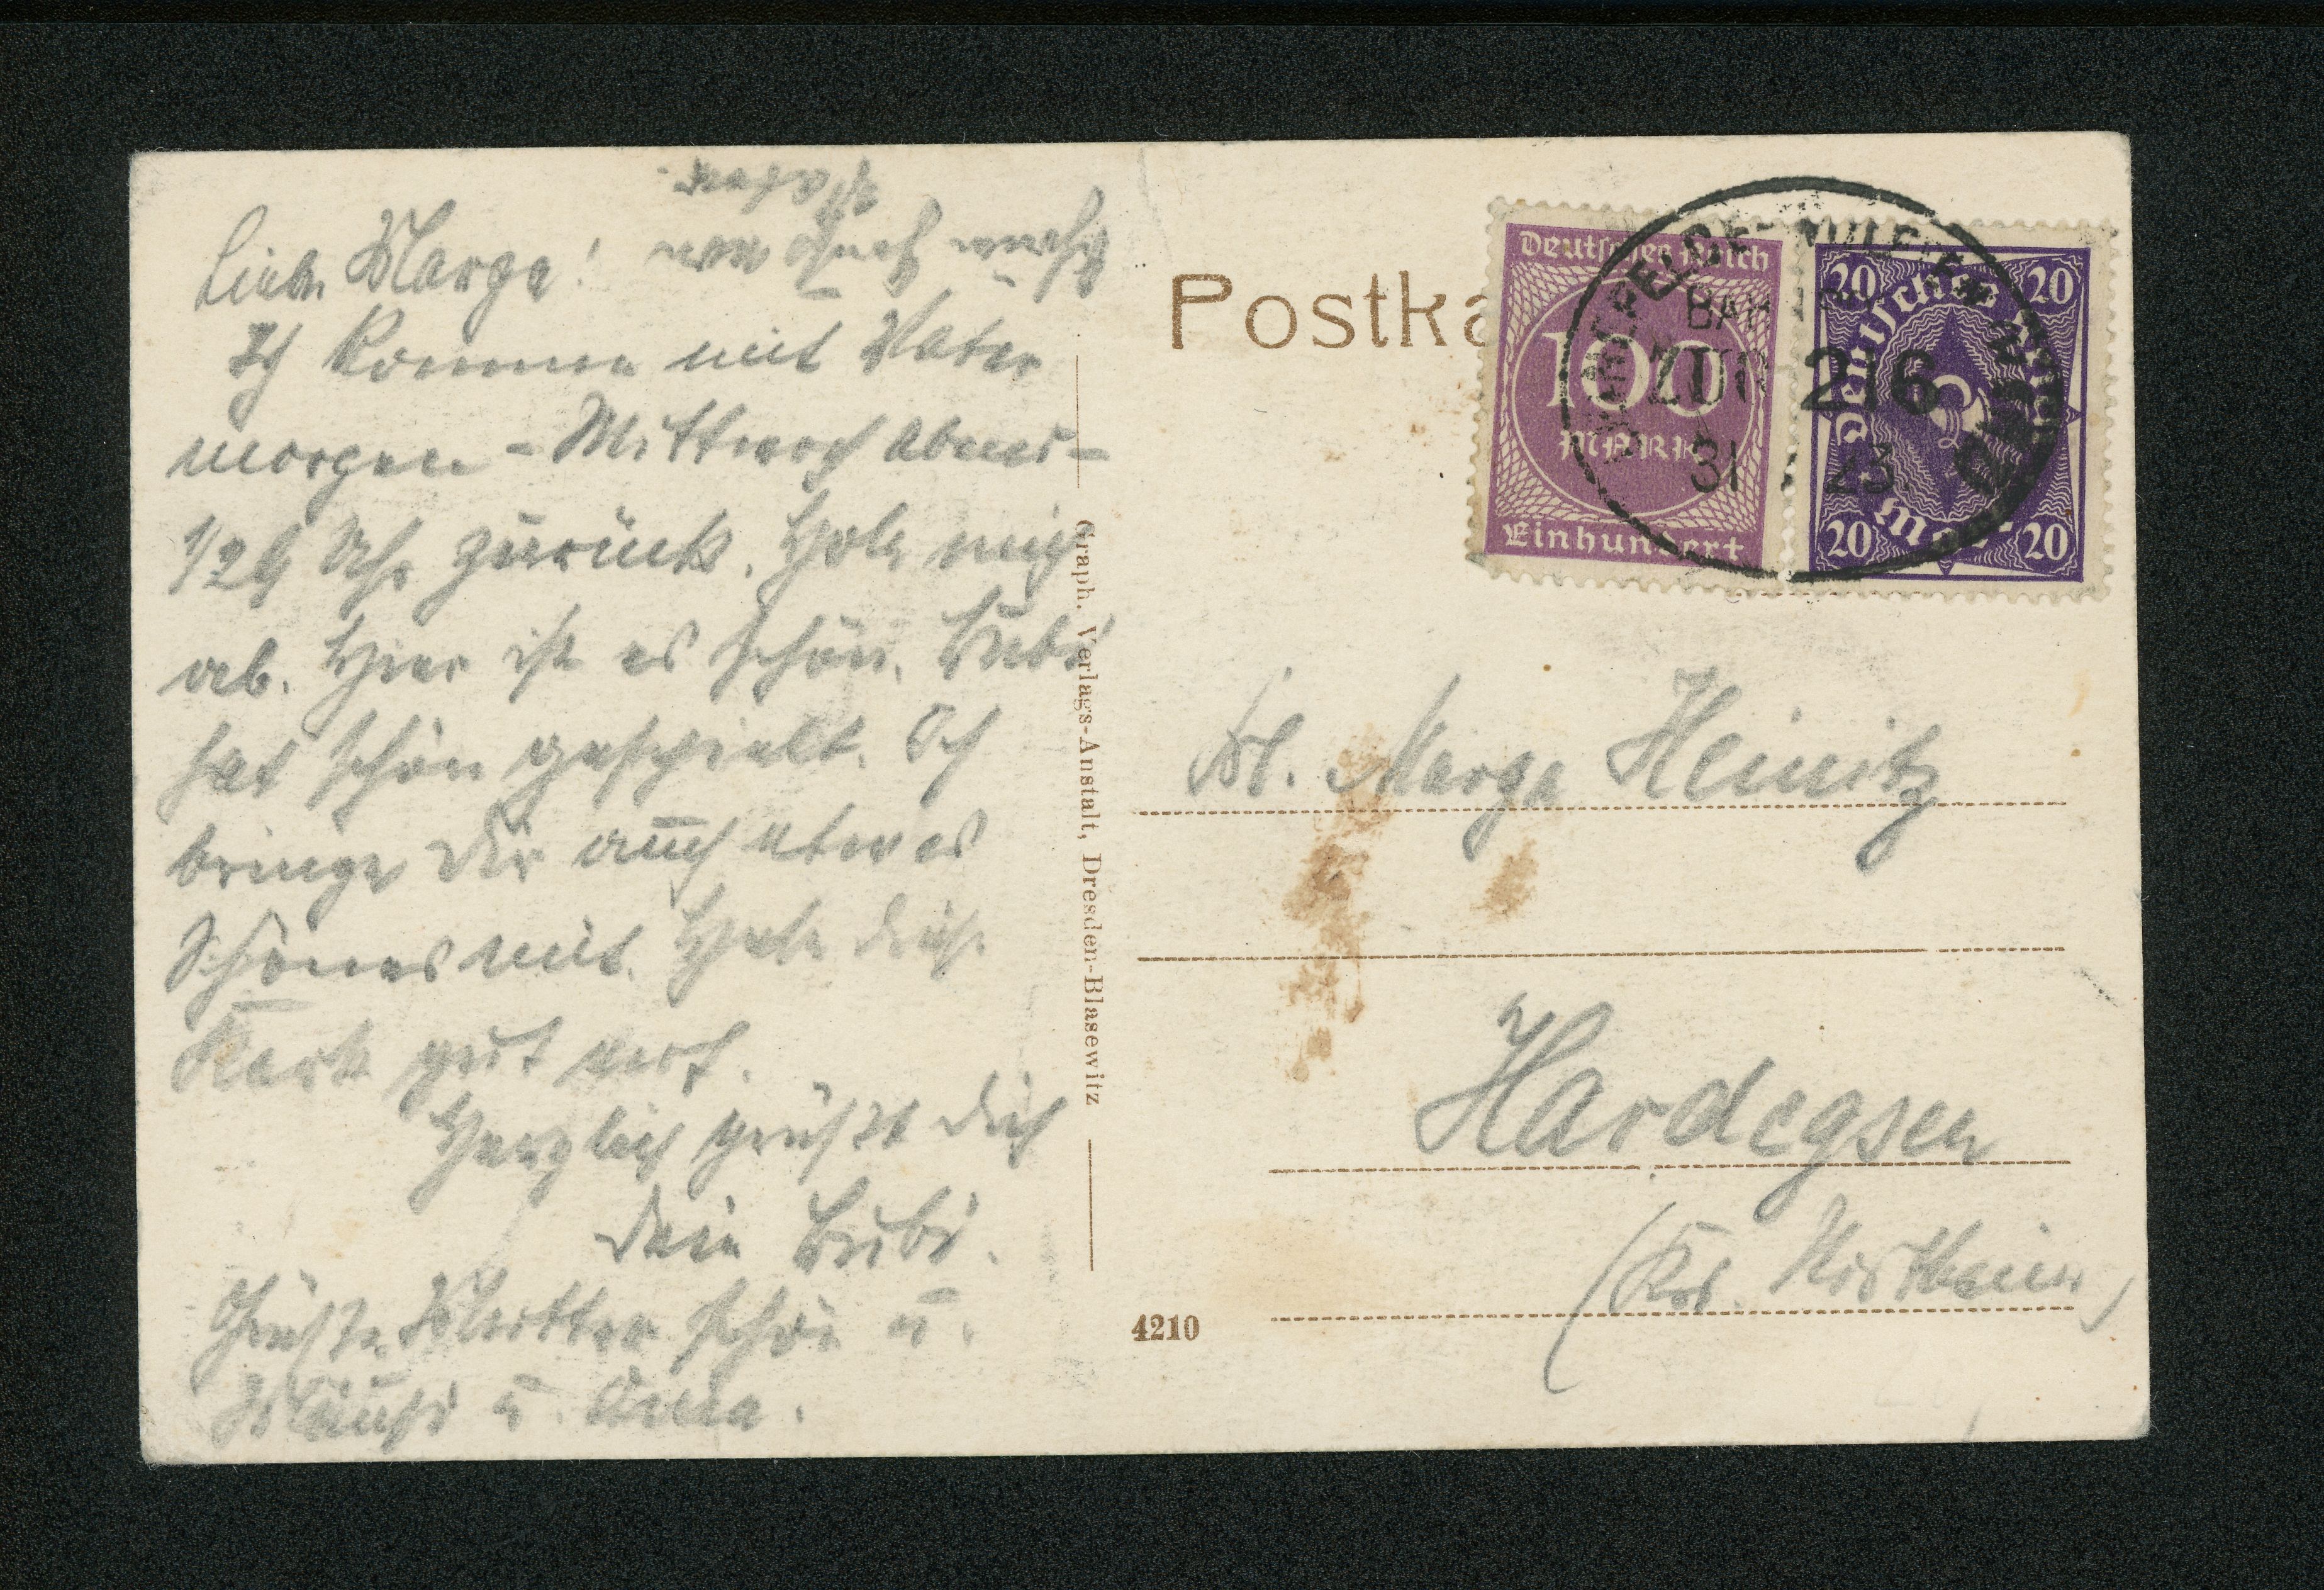 Liebe Marga!
Ich komme mit Vater
morgen - Mittwoch Abend -
1/2 9 Uhr zurück. Hole mich
ab. Hier ist es schön. Bubi
hat schön gespielt. Ich
bringe Dir auch etwas
Schönes mit. Hebe diese
Karte gut auf.
Herzlich grüßt Dich
Dein Bubi.
Grüße Mutter schön u.
Kläuschen u. Oma.
von Euch
Vater.
Postka
Graph. Verlags-Anstalt, Dresden-Blasewitz
4210
Deutsches Reich
100
MARK
Einhundert
20 20
Deutsches Reich
Mark
20 20
BAH
ZUG 216
31 23
Frl. Marga Heinitz
Hardegsen
(Krs. Northeim)